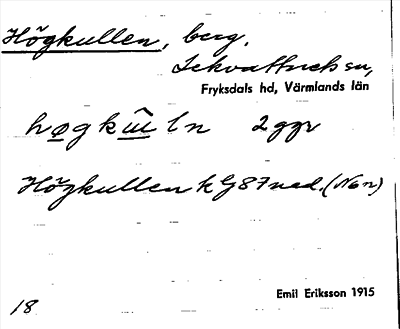 Högkullen, berg.
Lekvattnets sn,
Fryksdals hd, Värmlands län
høgkɯ̂ln 2 ggr
Högkullen k G87ned. (Non)
Emil Eriksson 1915
18